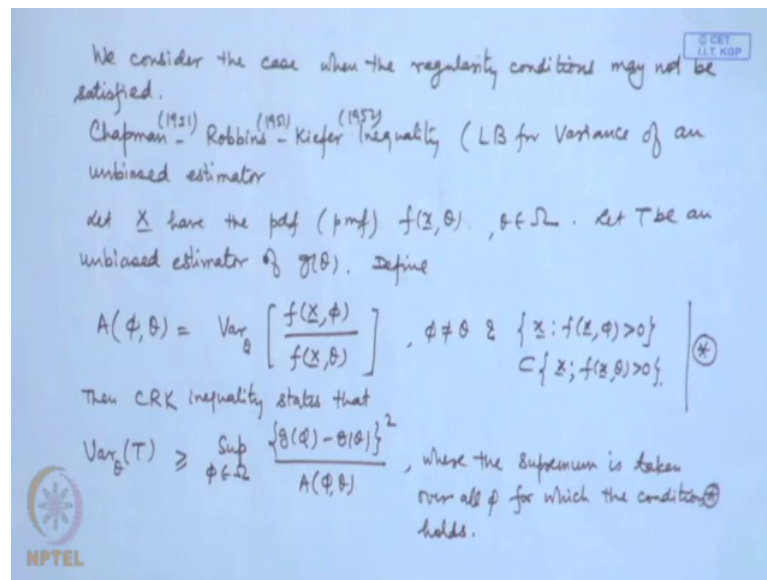 © CET
I.I.T. KGP
We consider the case when the regularity conditions may not be
satisfied.
(1951) (1951) (1952)
Chapman - Robbins - Kiefer Inequality ( LB for Variance of an
unbiased estimator
Let X have the pdf (pmf) f(x, θ) , θ ∈ Ω . Let T be an
unbiased estimator of g(θ). Define
A(φ, θ) = Var_θ [ f(X, φ) / f(X, θ) ] , φ ≠ θ & { x : f(x, φ) > 0 }
⊂ { x ; f(x, θ) > 0 }. (*)
Then CRK inequality states that
Var_θ (T) ≥ Sup_{φ ∈ Ω} {g(φ) - g(θ)}² / A(φ, θ) , where the supremum is taken
over all φ for which the condition (*)
holds.
NPTEL